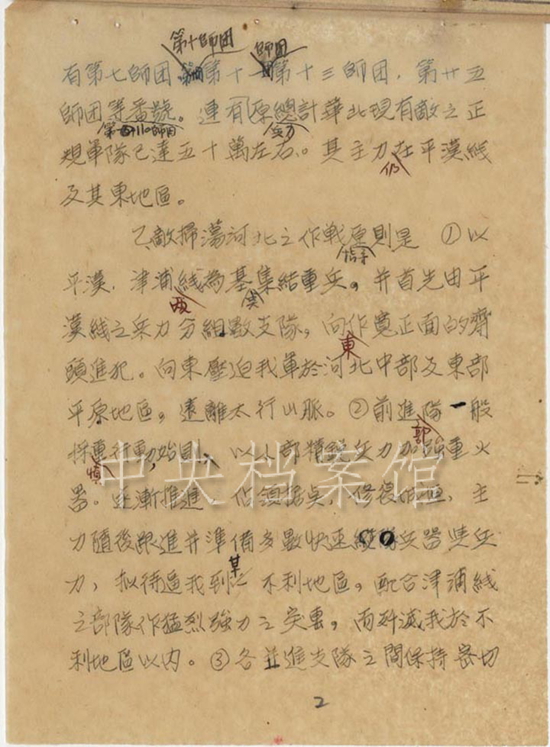 第十師团 師团
有第七師团 第十一第十三師团,第廿五
師团等番號。連有原總計華北現有敵之正
第一百一十師团 兵力
規軍隊已達五十萬左右。其主力仍在平漢線
及其東地區。
乙敵掃蕩河北之作戰原則是 ①以
平漢,津浦兩線為基集結重兵,并首先由平
漢線之兵力分組數支隊,向作寬正面的齊
頭進犯。向東壓迫我軍於河北中部及東部
平原地區,遠離太行山脈。②前進隊一般
慎重行動,以小部精銳兵力加強重火
器。逐漸推進 佔領据点,修復 主
力随後跟進并準備多數快速 兵器 兵
力,拟待迫我到某不利地區,配合津浦線
之部隊作猛烈強力之突擊,而殲滅我於不
利地區以内。③各並進支隊之間保持密切
2
中央档案馆